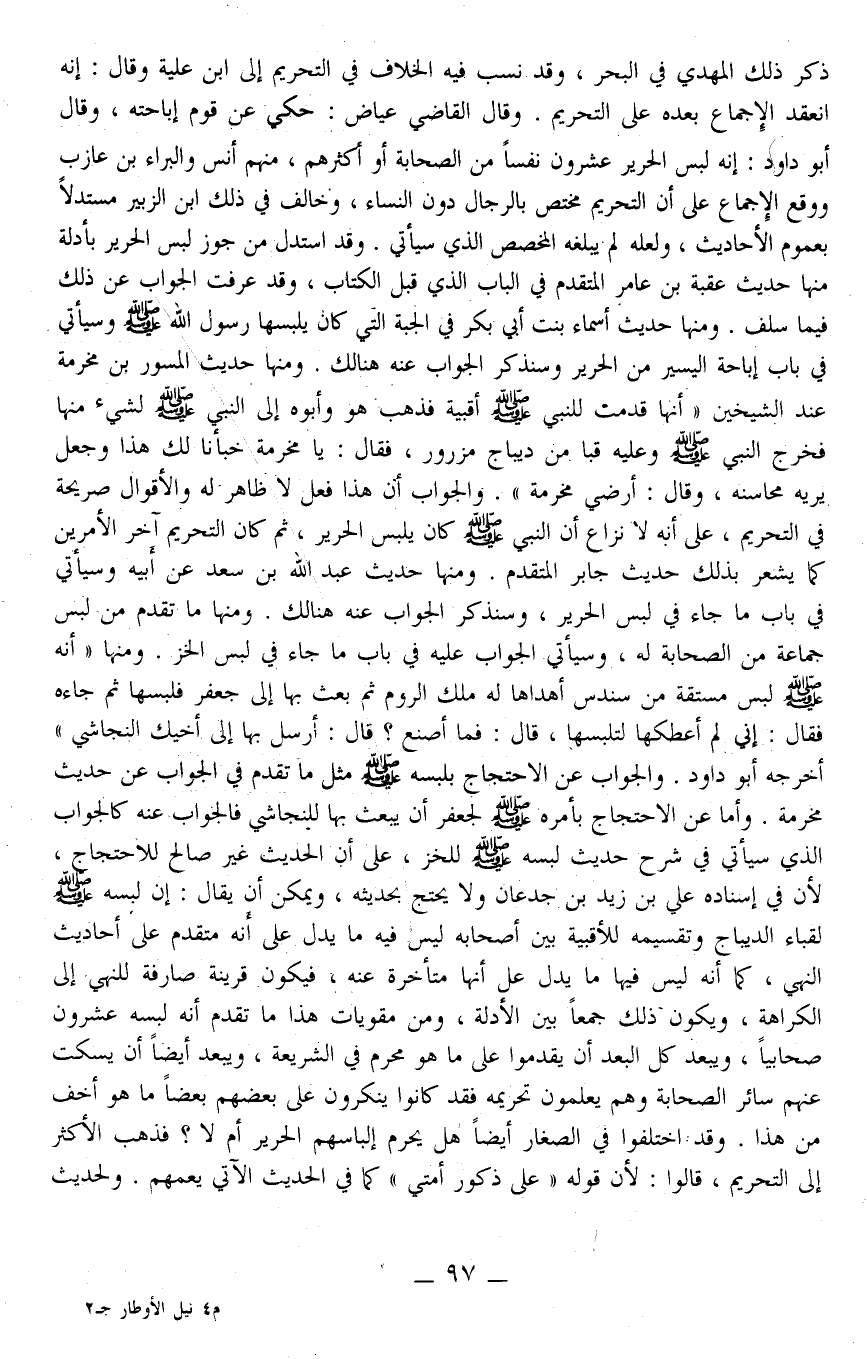 ذكر ذلك المهدي في البحر ، وقد نسب فيه الخلاف في التحريم إلى ابن علية وقال : إنه
انعقد الإجماع بعده على التحريم . وقال القاضي عياض : حكي عن قوم إباحته ، وقال
أبو داود : إنه لبس الحرير عشرون نفساً من الصحابة أو أكثرهم ، منهم أنس والبراء بن عازب
ووقع الإجماع على أن التحريم مختص بالرجال دون النساء ، وخالف في ذلك ابن الزبير مستدلاً
بعموم الأحاديث ، ولعله لم يبلغه المخصص الذي سيأتي . وقد استدل من جوز لبس الحرير بأدلة
منها حديث عقبة بن عامر المتقدم في الباب الذي قبل الكتاب ، وقد عرفت الجواب عن ذلك
فيما سلف . ومنها حديث أسماء بنت أبي بكر في الجبة التي كان يلبسها رسول الله ﷺ وسيأتي
في باب إباحة اليسير من الحرير وسنذكر الجواب عنه هنالك . ومنها حديث المسور بن مخرمة
عند الشيخين « أنها قدمت للنبي ﷺ أقبية فذهب هو وأبوه إلى النبي ﷺ لشيء منها
فخرج النبي ﷺ وعليه قبا من ديباج مزرور ، فقال : يا مخرمة خبأنا لك هذا وجعل
يريه محاسنه ، وقال : أرضي مخرمة » . والجواب أن هذا فعل لا ظاهر له والأقوال صريحة
في التحريم ، على أنه لا نزاع أن النبي ﷺ كان يلبس الحرير ، ثم كان التحريم آخر الأمرين
كما يشعر بذلك حديث جابر المتقدم . ومنها حديث عبد الله بن سعد عن أبيه وسيأتي
في باب ما جاء في لبس الحرير ، وسنذكر الجواب عنه هنالك . ومنها ما تقدم من لبس
جماعة من الصحابة له ، وسيأتي الجواب عليه في باب ما جاء في لبس الخز . ومنها « أنه
ﷺ لبس مستقة من سندس أهداها له ملك الروم ثم بعث بها إلى جعفر فلبسها ثم جاءه
فقال : إني لم أعطكها لتلبسها ، قال : فما أصنع ؟ قال : أرسل بها إلى أخيك النجاشي »
أخرجه أبو داود . والجواب عن الاحتجاج بلبسه ﷺ مثل ما تقدم في الجواب عن حديث
مخرمة . وأما عن الاحتجاج بأمره ﷺ لجعفر أن يبعث بها للنجاشي فالجواب عنه كالجواب
الذي سيأتي في شرح حديث لبسه ﷺ للخز ، على أن الحديث غير صالح للاحتجاج ،
لأن في إسناده علي بن زيد بن جدعان ولا يحتج بحديثه ، ويمكن أن يقال : إن لبسه ﷺ
لقباء الديباج وتقسيمه للأقبية بين أصحابه ليس فيه ما يدل على أنه متقدم على أحاديث
النهي ، كما أنه ليس فيها ما يدل عل أنها متأخرة عنه ، فيكون قرينة صارفة للنهي إلى
الكراهة ، ويكون ذلك جمعاً بين الأدلة ، ومن مقويات هذا ما تقدم أنه لبسه عشرون
صحابياً ، ويبعد كل البعد أن يقدموا على ما هو محرم في الشريعة ، ويبعد أيضاً أن يسكت
عنهم سائر الصحابة وهم يعلمون تحريمه فقد كانوا ينكرون على بعضهم بعضاً ما هو أخف
من هذا . وقد اختلفوا في الصغار أيضاً هل يحرم إلباسهم الحرير أم لا ؟ فذهب الأكثر
إلى التحريم ، قالوا : لأن قوله « على ذكور أمتي » كما في الحديث الآتي يعمهم . ولحديث
– ٩٧ –
م٤ نيل الأوطار جـ٢